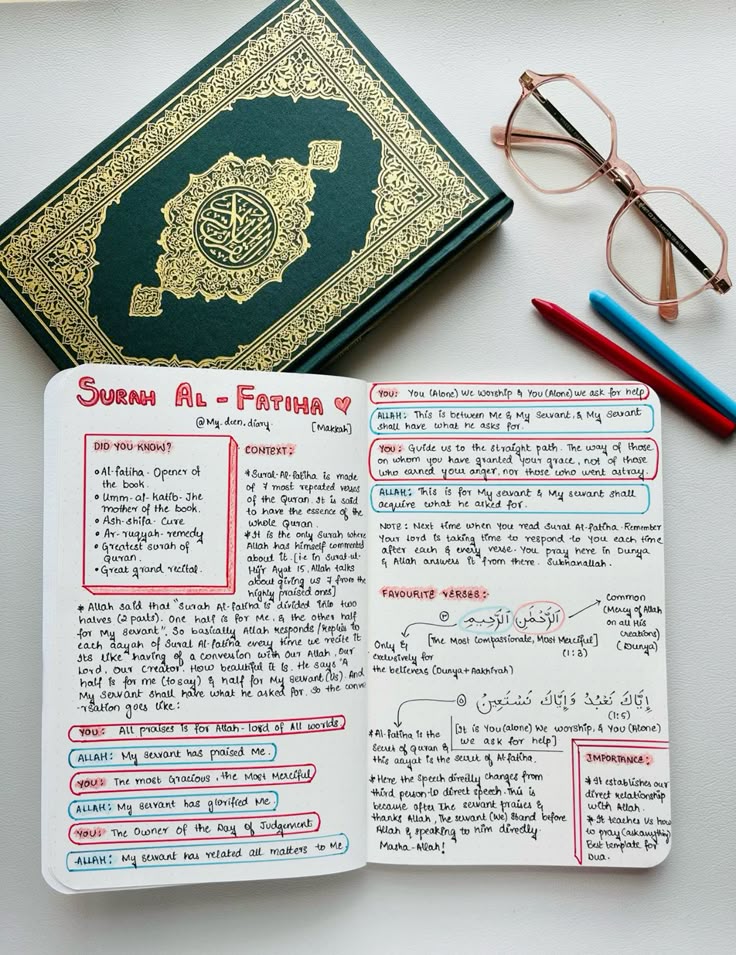 SURAH AL-FATIHA
@My.deen.diary
[Makkah]
DID YOU KNOW?
• Al-fatiha - Opener of
the book.
• Umm-al-katib - The
mother of the book.
• Ash-shifa - Cure
• Ar-ruqyah - remedy
• Greatest surah of
Quran.
• Great grand recital.
CONTEXT:
* Surat-Al-fatiha is made
of 7 most repeated verses
of the Quran. It is said
to have the essence of the
whole Quran.
* It is the only Surah where
Allah has himself commented
about it. [i.e in Surat-al-
Hijr Ayat 15, Allah talks
about giving us 7 from the
highly praised ones]
* Allah said that "Surah Al-fatiha is divided into two
halves (2 parts). One half is for Me, & the other half
for My servant". So basically Allah responds/replies to
each aayah of Surah Al-fatiha every time we recite it
Its like having of a conversion with Our Allah, Our
Lord, Our Creator. How beautiful it is. He says "A
half is for me (to say) & half for My servant (Us). And
My servant shall have what he asked for. So the conve
-rsation goes like:
YOU: All praises is for Allah - lord of All worlds
ALLAH: My servant has praised Me.
YOU: The most Gracious, the Most Merciful
ALLAH: My servant has glorified Me.
YOU: The Owner of the Day of Judgement
ALLAH: My servant has related all matters to Me
YOU: You (Alone) We worship & You (Alone) we ask for help
ALLAH: This is between Me & My Servant, & My servant
shall have what he asks for.
YOU: Guide us to the straight path. The way of those
on whom you have granted your grace, not of those
who earned your anger, nor those who went astray.
ALLAH: This is for My servant & My servant shall
acquire what he asked for.
NOTE: Next time when you read Surat Al-fatiha. Remember
Your Lord is taking time to respond to you each time
after each & every verse. You pray here in Dunya
& Allah answers it from there. Subhanallah.
FAVOURITE VERSES:
ٱلرَّحْمَٰنِ ٱلرَّحِيمِ ٣
[The Most Compassionate, Most Merciful]
(1:3)
Common
(Mercy of Allah
on all His
creations)
(Dunya)
Only &
exclusively for
the believers (Dunya + Aakhirah)
إِيَّاكَ نَعْبُدُ وَإِيَّاكَ نَسْتَعِينُ ٥
(1:5)
[It is You (alone) We worship, & You (Alone)
we ask for help]
* Al-fatiha is the
secret of Quran &
this aayat is the secret of Al-fatiha.
* Here, the speech directly changes from
third person to direct speech. This is
because after the servant praises &
thanks Allah, the servant (we) stand before
Allah & speaking to Him directly.
Masha-Allah!
IMPORTANCE:
* It establishes our
direct relationship
with Allah.
* It teaches us how
to pray (ask anything)
Best template for
Dua.